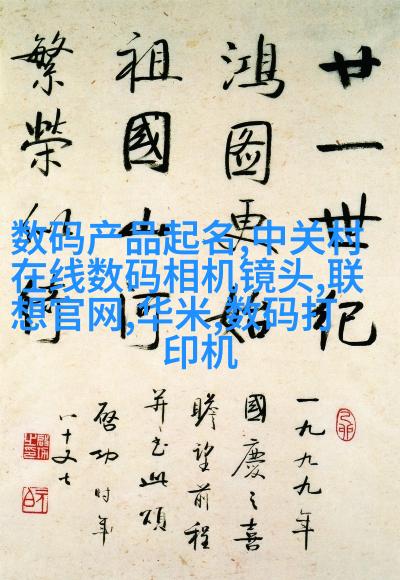 廿一世紀
鴻圖更始
祖國山河
繁榮似綺
数码产品起名,中关村
在线数码相机镜头,联
想官网,华米,数码打
印机
一九九九年
國慶之喜
瞻望前程
并書此頌
啓功时年
八十又七